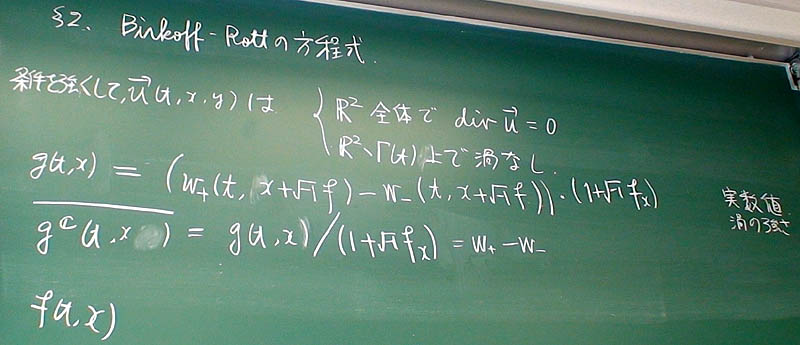 §2. Birkoff-Rottの方程式.
条件を強くして, u⃗(t,x,y)は { R² 全体で div u⃗ = 0
R²∖Γ(t)上で渦なし.
g(t,x) = (w₊(t, x+√-1 f) - w₋(t, x+√-1 f))・(1+√-1 fₓ)
実数値
渦の強さ
g^c(t,x) = g(t,x)/(1+√-1 fₓ) = w₊ - w₋
f(t,x)